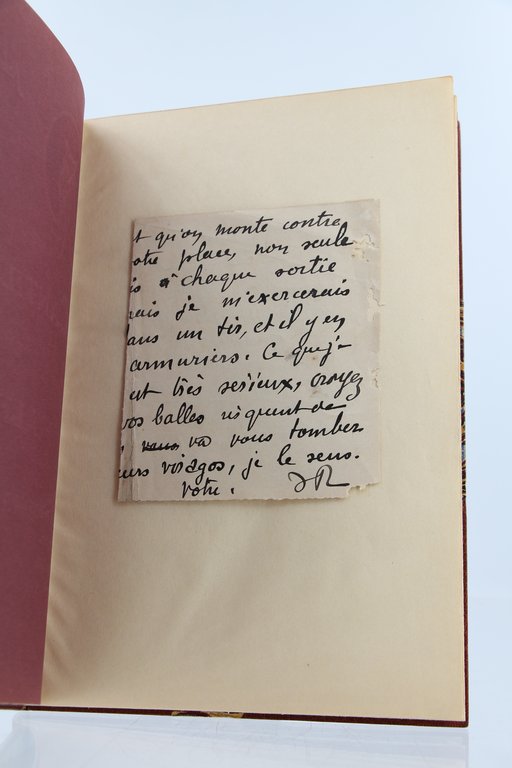 t qu'on monte contre
otre place, non seule
is à chaque sortie
rais je m'exercerais
ans un tir, et il y en
armuriers. Ce que j-
ut très sérieux, croyez
vos balles risquent de
va vous tomber
urs visages, je le sens.
votre. JR